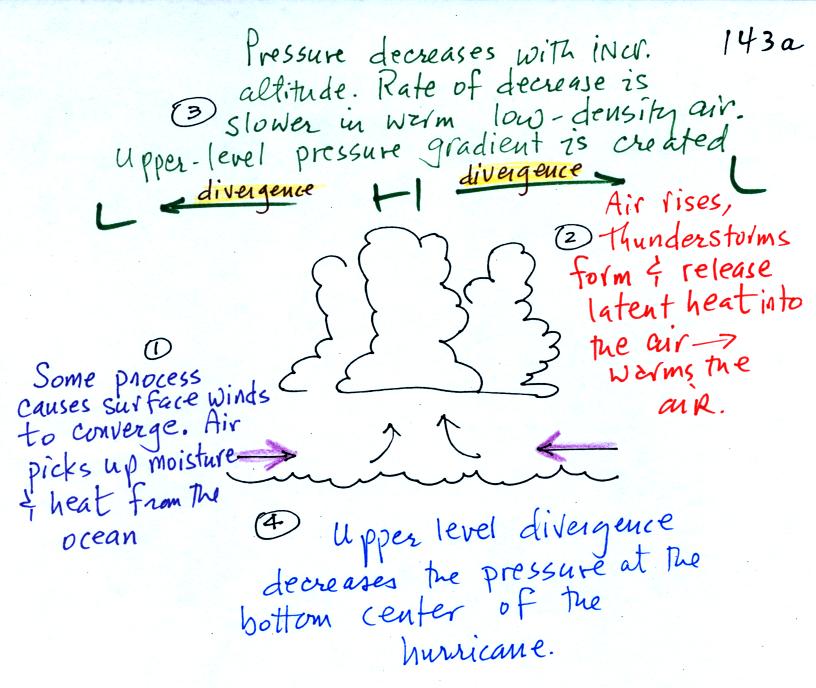 143a
Pressure decreases with incr.
altitude. Rate of decrease is
③ slower in warm low-density air.
Upper-level pressure gradient is created
L divergence H divergence L
② Air rises,
thunderstorms
form & release
latent heat into
the air →
warms the
air.
①
Some process
causes surface winds
to converge. Air
picks up moisture
& heat from the
ocean
④ Upper level divergence
decreases the pressure at the
bottom center of the
hurricane.